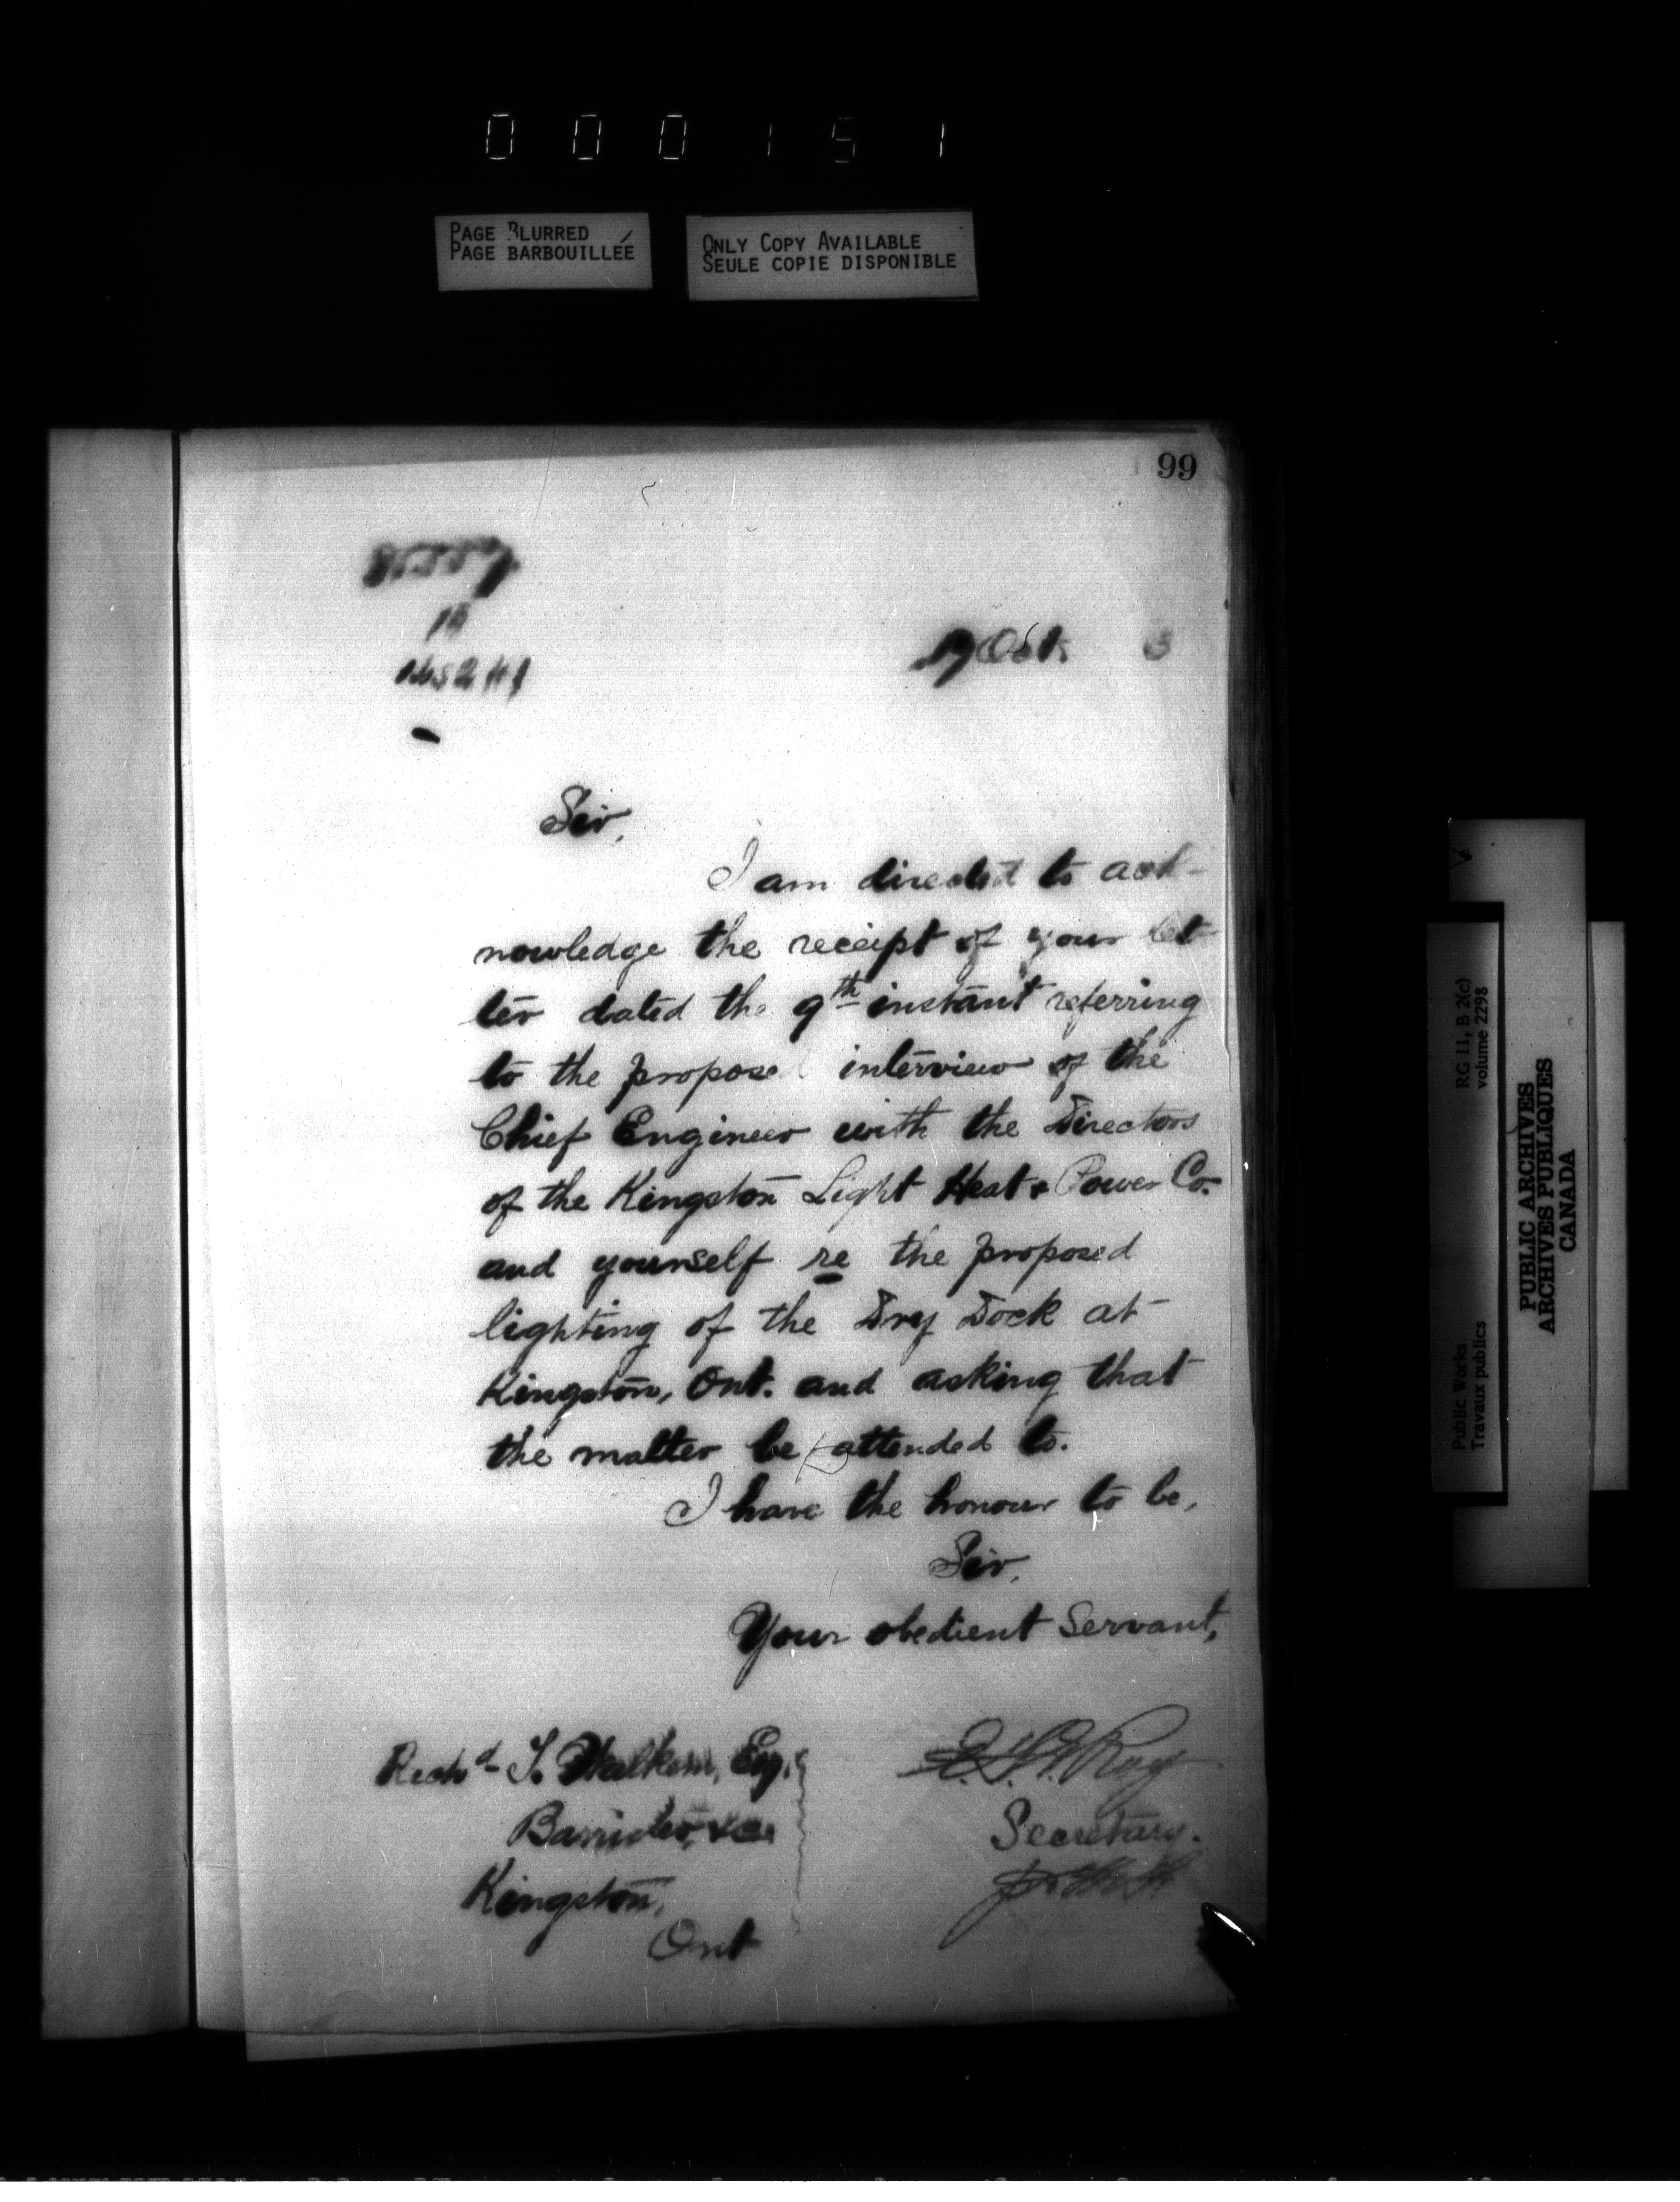 000151
PAGE BLURRED
PAGE BARBOUILLÉE
ONLY COPY AVAILABLE
SEULE COPIE DISPONIBLE
99
Oct.
Sir,
I am directed to ack-
nowledge the receipt of your let
ter dated the 9th instant referring
to the proposed interview of the
Chief Engineer with the Directors
of the Kingston Light Heat & Power Co.
and yourself re the proposed
lighting of the Dry Dock at
Kingston, Ont. and asking that
the matter be attended to.
I have the honour to be,
Sir,
Your obedient Servant,
Richd T. Walkem, Esq.
Barrister, &c.
Kingston,
Ont
E.F.E. Roy
Secretary.
Public Works
Travaux publics
RG 11, B 2(c)
volume 2298
PUBLIC ARCHIVES
ARCHIVES PUBLIQUES
CANADA